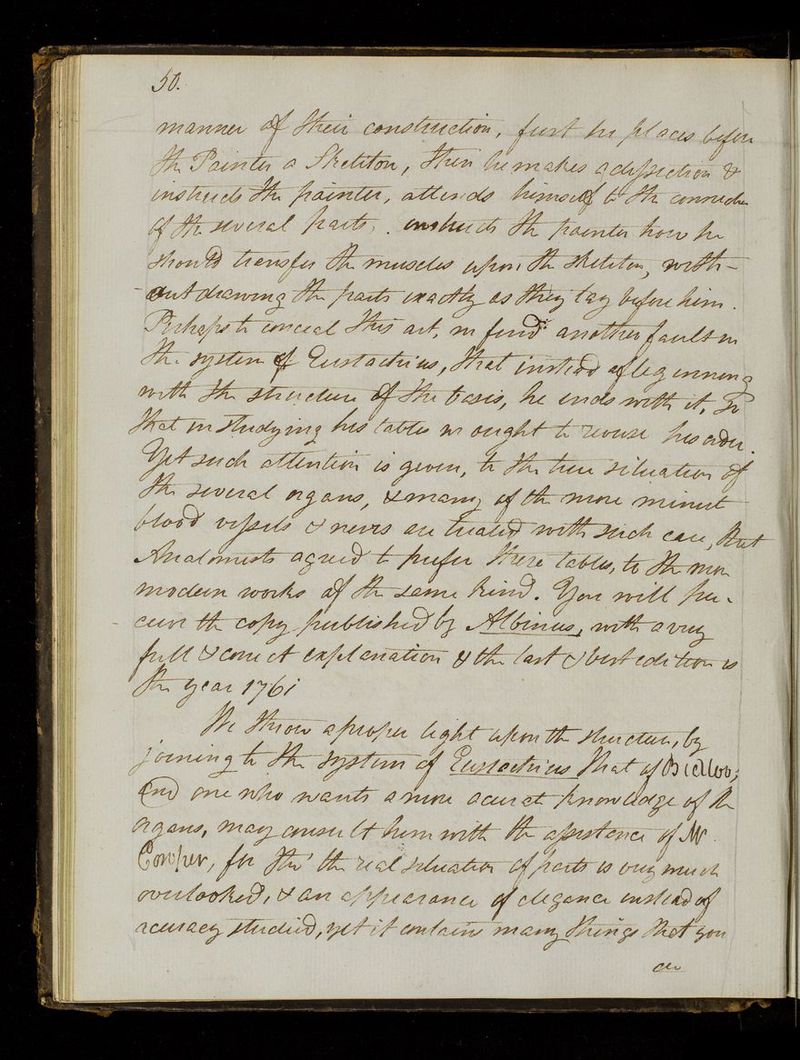 50.
manner of their construction, first he places before
the Painter a Skeliton, then he makes a dissection &
instructs the painter, attends himself to the connection
of the several parts, instructs the painter how he
should transfer the muscles upon the skeliton, with-
out drawing the parts exactly as they lay before him.
Perhaps to conceal this art, we find another fault in
the system of Eustachius, that instead of beginning
with the structure of the basis, he ends with it, So
that in studying his tables we ought to reverse his order.
Yet such attention is given, to the true situation of
the several organs, & many of the more minute
blood vessels & nervs are treated with such care, that
Anatomists agreed to prefer these tables, to the more
modern works of the same kind. You will per-
ceive the copy published by Albinus, with a very
full & correct explanation & the last & best edition is
the year 1761
We throw a proper light upon the structure, by
joining to the system of Eustachius that of Bidloo;
and one who wants a more acurat knowledge of the
organs, may consult him with the assistance of Mr.
Cowper, for tho' the real situation of parts is very much
overlooked, & an appearance of elegance instead of
acuracy studied, yet it contains many things that you